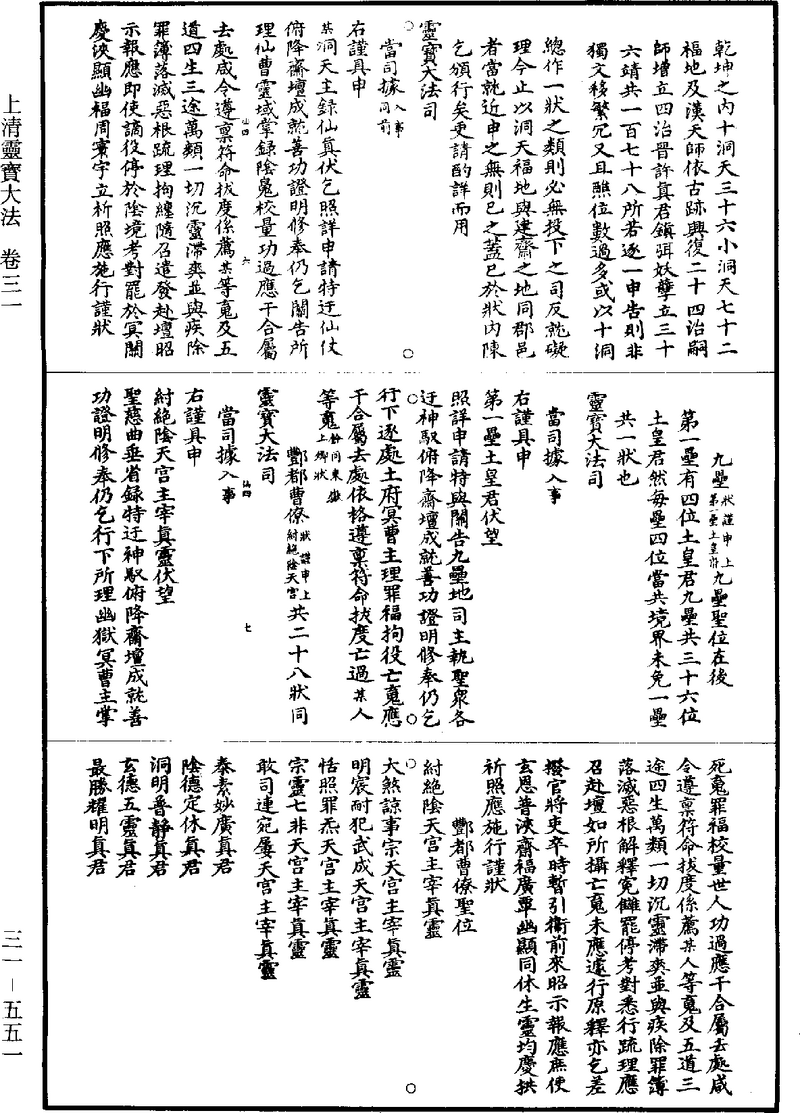 乾坤之內十洞天三十六小洞天七十二
福地及漢天師依古跡興復二十四治嗣
師增立四治晉許真君鎮弭妖孽立三十
六靖共一百七十八所若逐一申告則非
獨文移繁冗又且醮位數過多或以十洞
總作一狀之類則必無投下之司反就礙
理今止以洞天福地與建齋之地同郡邑
者當就近申之無則已之蓋已於狀內陳
乞頒行矣更請酌詳而用
靈寶大法司
當司據入事同前
右謹具申
某洞天主錄仙真伏乞照詳申請特迂仙仗
俯降齋壇成就善功證明修奉仍乞關告所
理仙曹靈域掌錄陰鬼校量功過應干合屬
去處咸令遵稟符命拔度係薦某等魂及五
道四生三途萬類一切沉靈滯爽並與疾除
罪簿落滅惡根疏理拘纏隨召遣發赴壇昭
示報應即使謫役停於陰境考對罷於冥關
慶浹顯幽福周寰宇立祈照應施行謹狀
九壘狀謹申上第一壘土皇君九壘聖位在後
第一壘有四位土皇君九壘共三十六位
土皇君然每壘四位當共境界未免一壘
共一狀也
靈寶大法司
當司據入事
右謹具申
第一壘土皇君伏望
照詳申請特與關告九壘地司主執聖衆各
迂神馭俯降齋壇成就善功證明修奉仍乞
行下逐處土府冥曹主理罪福拘役亡魂應
干合屬去處依格遵稟符命拔度亡過某人
等魂餘同東嶽上鄉狀
酆都曹僚狀謹申上紂絕陰天宮共二十八狀同
靈寶大法司
當司據入事
右謹具申
紂絕陰天宮主宰真靈伏望
聖慈曲垂省錄特迂神馭俯降齋壇成就善
功證明修奉仍乞行下所理幽獄冥曹主掌
死魂罪福校量世人功過應干合屬去處咸
令遵稟符命拔度係薦某人等魂及五道三
途四生萬類一切沉靈滯爽並與疾除罪簿
落滅惡根解釋冤讎罷停考對悉行疏理應
召赴壇如所攝亡魂未應遽行原釋亦乞差
撥官將吏卒時暫引衛前來昭示報應庶使
玄恩普浹齋福廣覃幽顯同休生靈均慶拱
祈照應施行謹狀
酆都曹僚聖位
紂絕陰天宮主宰真靈
大煞諒事宗天宮主宰真靈
明宸耐犯武成天宮主宰真靈
恬照罪炁天宮主宰真靈
宗靈七非天宮主宰真靈
敢司連宛屢天宮主宰真靈
泰素妙廣真君
陰德定休真君
洞明普靜真君
玄德五靈真君
最勝耀明真君
上清靈寶大法　卷三一
三一－五五一